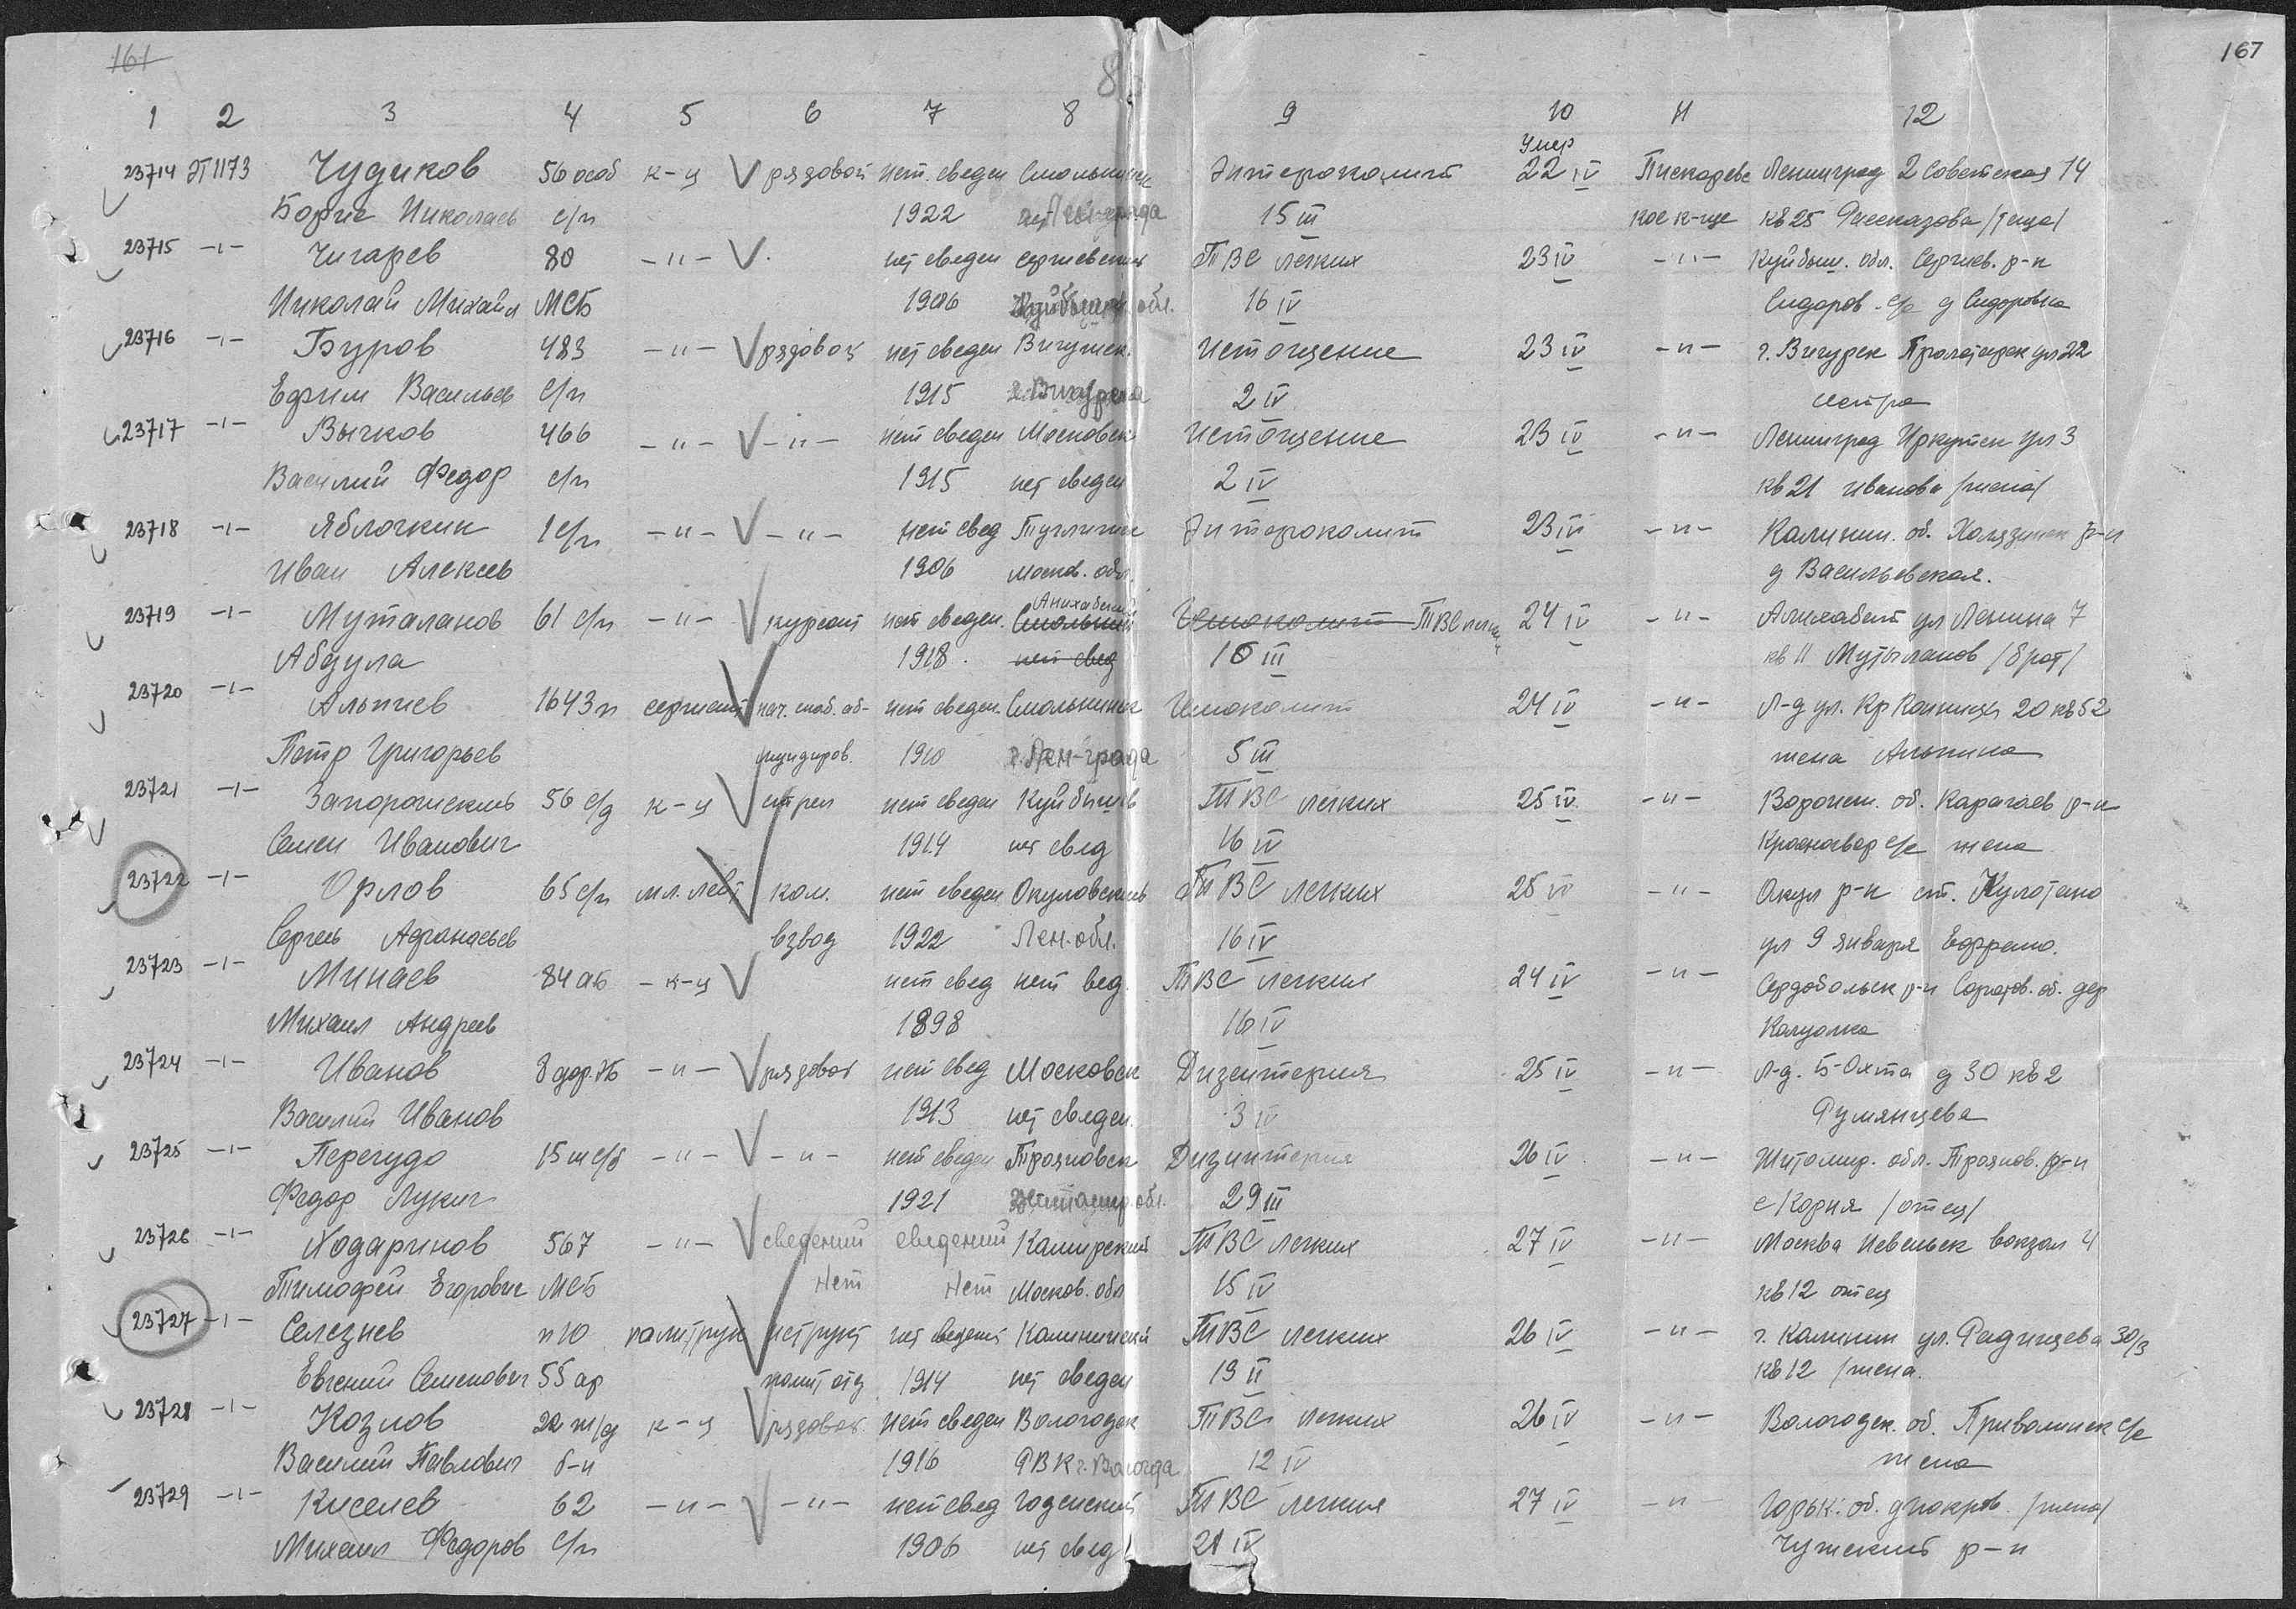 161
167
8
1 2 3 4 5 6 7 8 9 10 11 12
Умер
23714 ЭГ1173 Чудиков 56 особ к-ц рядовой нет. сведен Смольнинск Энтероколит 22 IV Пискарёвс Ленинград 2 Советская 14
Борис Николаев с/п 1922 Лен-града 15 III кое к-ще кв 25 Рассказова /теща/
23715 -"- Чигарев 80 -"- нет сведен Сергиевский ТВС легких 23 IV -"- Куйбыш. обл. Сергиев. р-н
Николай Михайл МСБ 1906 Куйбыш. обл. 16 IV Сидоров. с/с д Сидоровка
23716 -"- Буров 483 -"- рядовой нет сведен Вичугск. Истощение 23 IV -"- г. Вичугск Пролетарск ул 22
Ефим Васильев с/п 1915 г. Вичуга 2 IV сестра
23717 -"- Вычков 466 -"- -"- нет сведен Московск Истощение 23 IV -"- Ленинград Иркутск ул 3
Василий Федор с/п 1915 нет сведен 2 IV кв 21 Иванова /жена/
23718 -"- Яблочкин 1 с/п -"- -"- нет свед Энтероколит 23 IV -"- Калинин. об. Калязинск р-н
Иван Алексеев 1906 Москов. обл. д Васильевская.
23719 -"- Муталапов 61 с/п -"- курсант нет сведен. Смольный Гемоколит ТВС легк 24 IV -"- ул Ленина 7
Абдула 1918. нет свед 10 III кв 11 /брат/
23720 -"- Альпиев 1643 п сержант нач. снаб. об- нет сведен. Смольнинск Гемоколит 24 IV -"- Л-д ул. Кр Конницы 20 кв 52
Петр Григорьев мундиров. 1910 г. Лен-града 5 III жена Альпина
23721 -"- Запорожский 56 с/д к-ц стрел нет сведен Куйбышев ТВС легких 25 IV -"- Воронеж. об. р-н
Семен Иванович 1914 нет свед 16 IV с/с жена
23722 -"- Орлов 65 с/п мл. лейт ком. нет сведен Окуловский ТВС легких 25 IV -"- Окул р-н ст. Кулотино
Сергей Афанасьев взвод 1922 Лен. обл. 16 IV ул 9 января
23723 -"- Минаев 84 АБ -к-ц нет свед нет вед. ТВС легких 24 IV -"- Сердобольск р-н Саратов. об. дер
Михаил Андреев 1898 16 IV
23724 -"- Иванов 8 дор. ЭБ -"- рядовой нет свед Московск Дизентерия 25 IV -"- Л-д. Б-Охта д 30 кв 2
Василий Иванов 1913 нет сведен. 3 IV Румянцева
23725 -"- Перегудо 15 ш с/б -"- -"- нет сведен Трояновск Дизинтерия 26 IV -"- Житомир. обл. Троянов. р-н
Федор Лукич 1921 Житомир. обл. 29 III с/Корня /отец/
23726 -"- Ходаринов 567 -"- сведений сведений Каширский ТВС легких 27 IV -"- Москва вокзал 4
Тимофей Егорович МСБ Нет Нет Москов. обл 15 IV кв 12 отец
23727 -"- Селезнев п10 политрук иструкт нет сведений Калининский ТВС легких 26 IV -"- г. Калинин ул. Радищева 30/3
Евгений Семенович 55 ар полит отд 1914 нет сведен 19 II кв 12 /жена.
23728 -"- Козлов 22 ж/д к-ц рядовой нет сведен Вологодск ТВС легких 26 IV -"- Вологодск. об. с/с
Василий Павлович б-н 1916 РВК г. Вологда 12 IV жена
23729 -"- Киселев 62 -"- -"- нет свед ТВС легких 27 IV -"- Горьк. об. /жена/
Михаил Федоров с/п 1906 нет свед 21 IV р-н